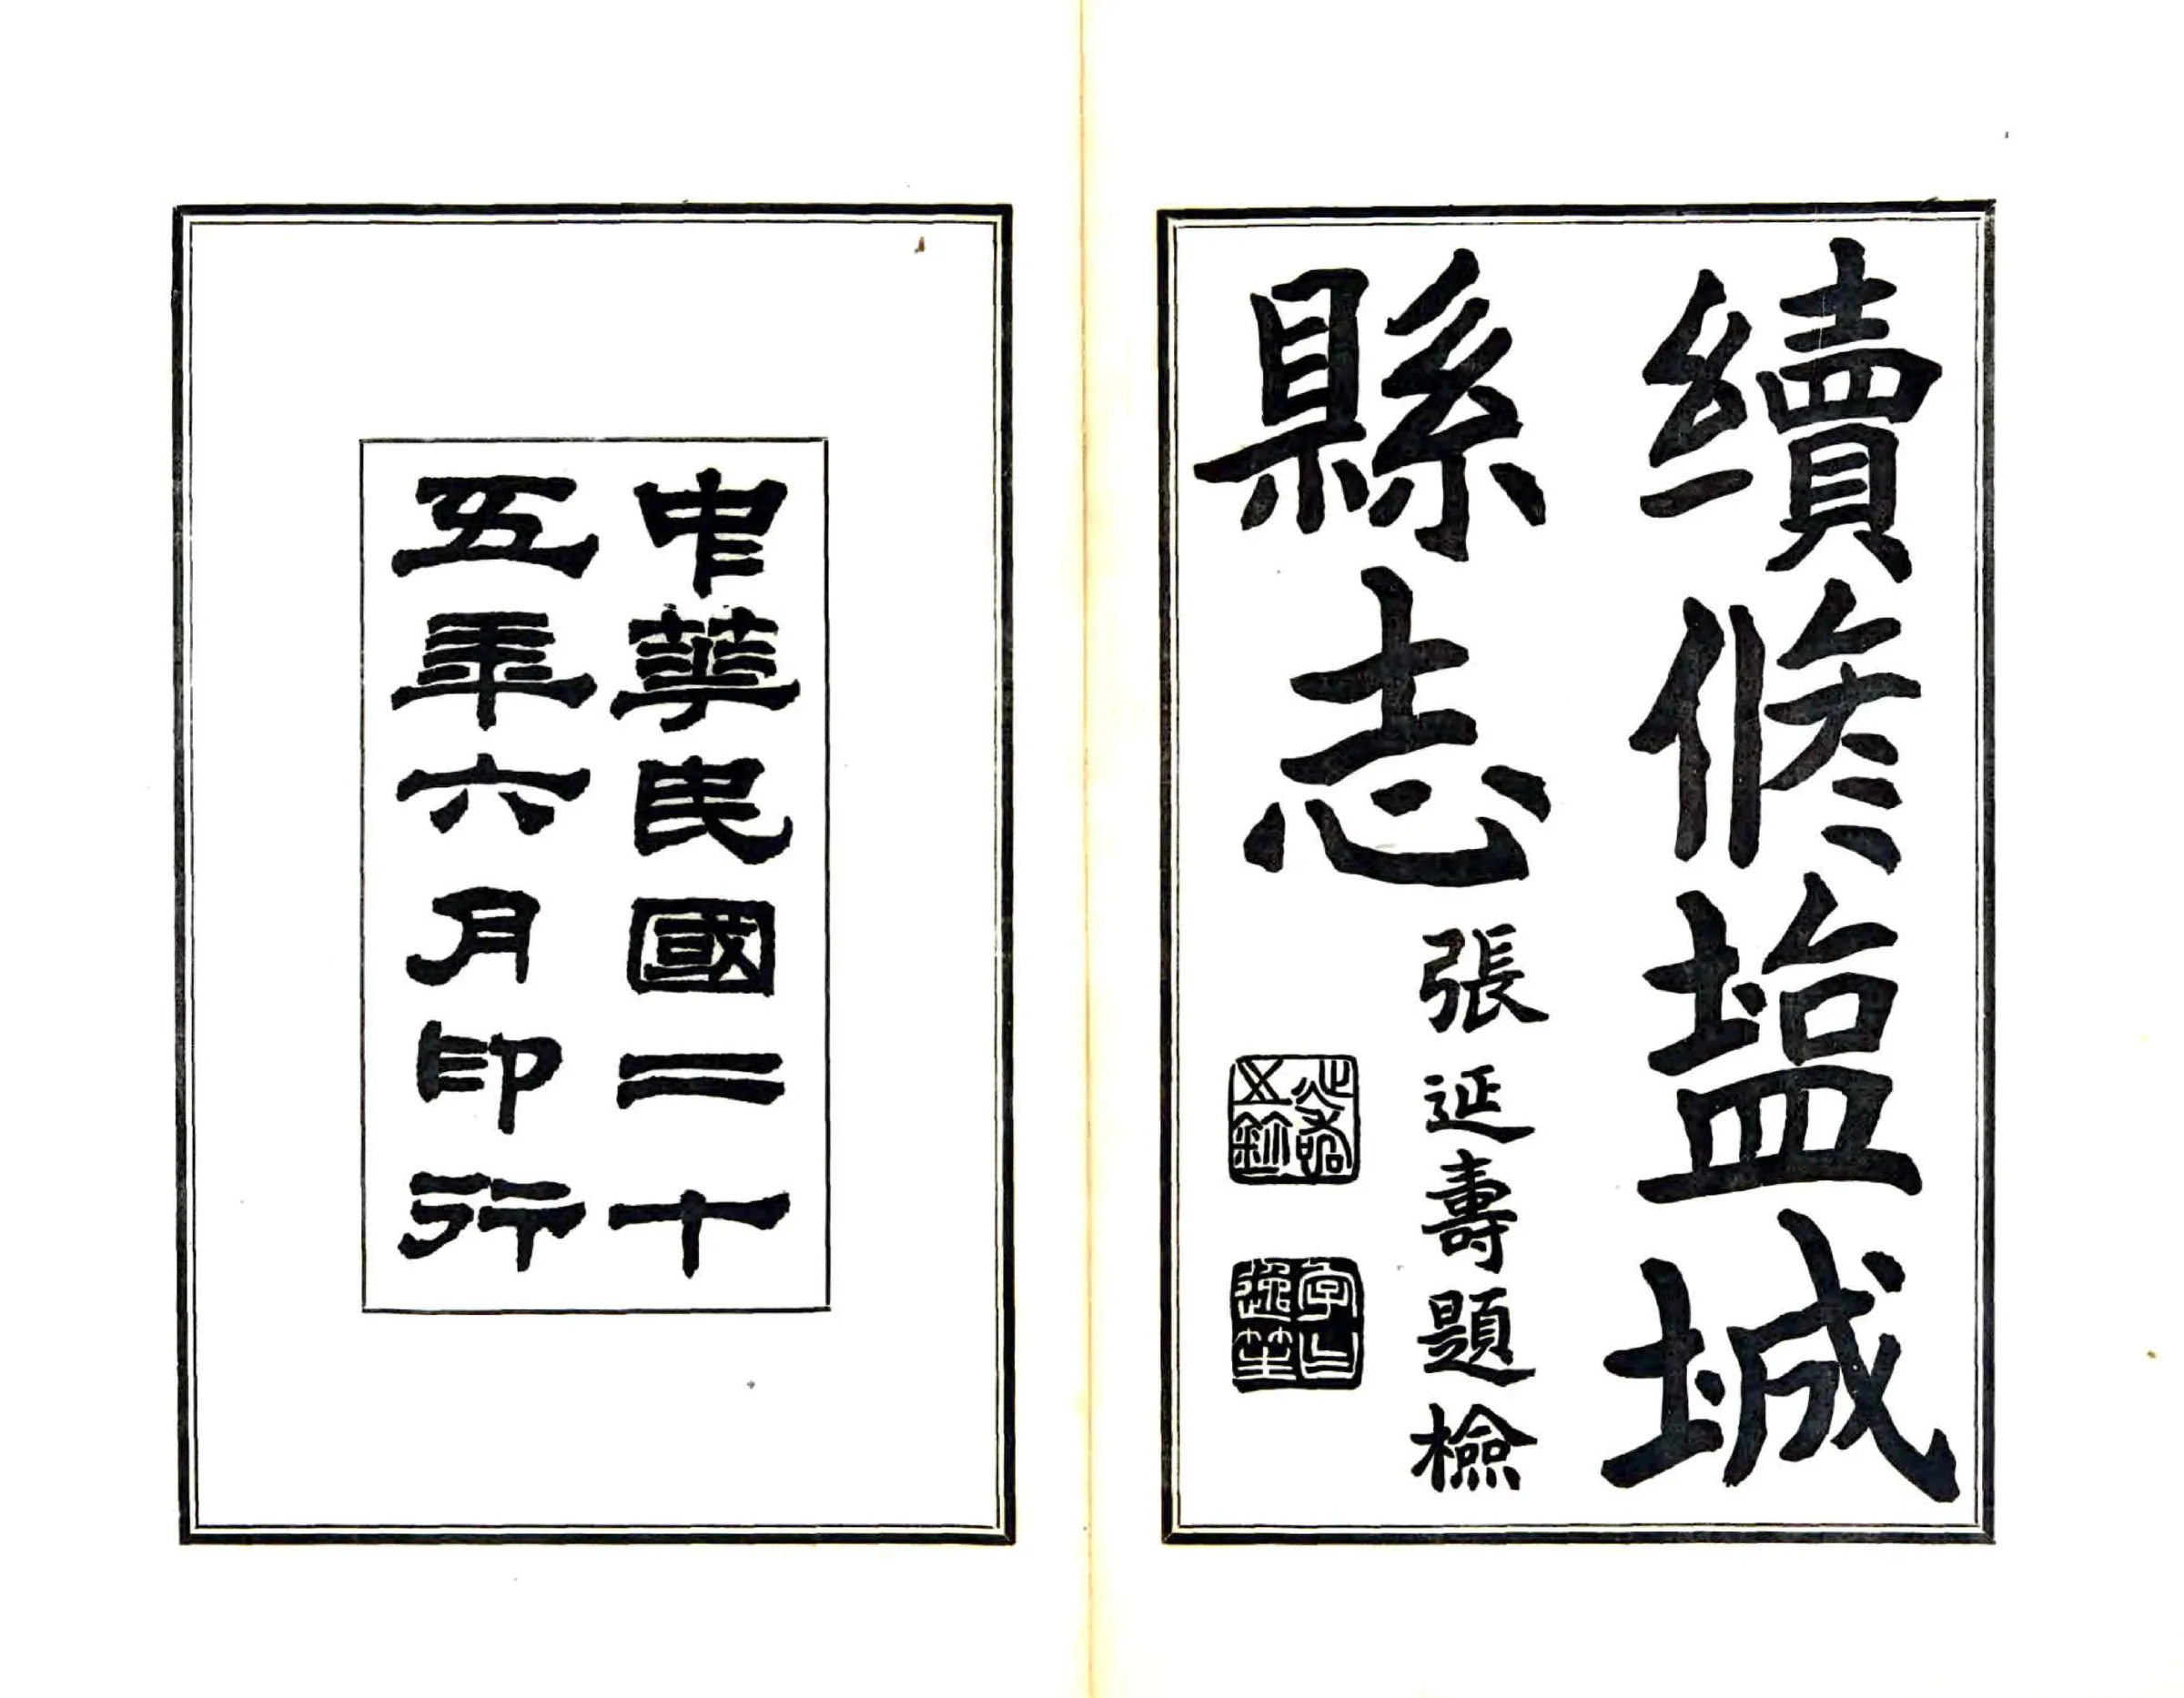 續修塩城
縣志
張延壽題檢
中華民國二十
五年六月印行